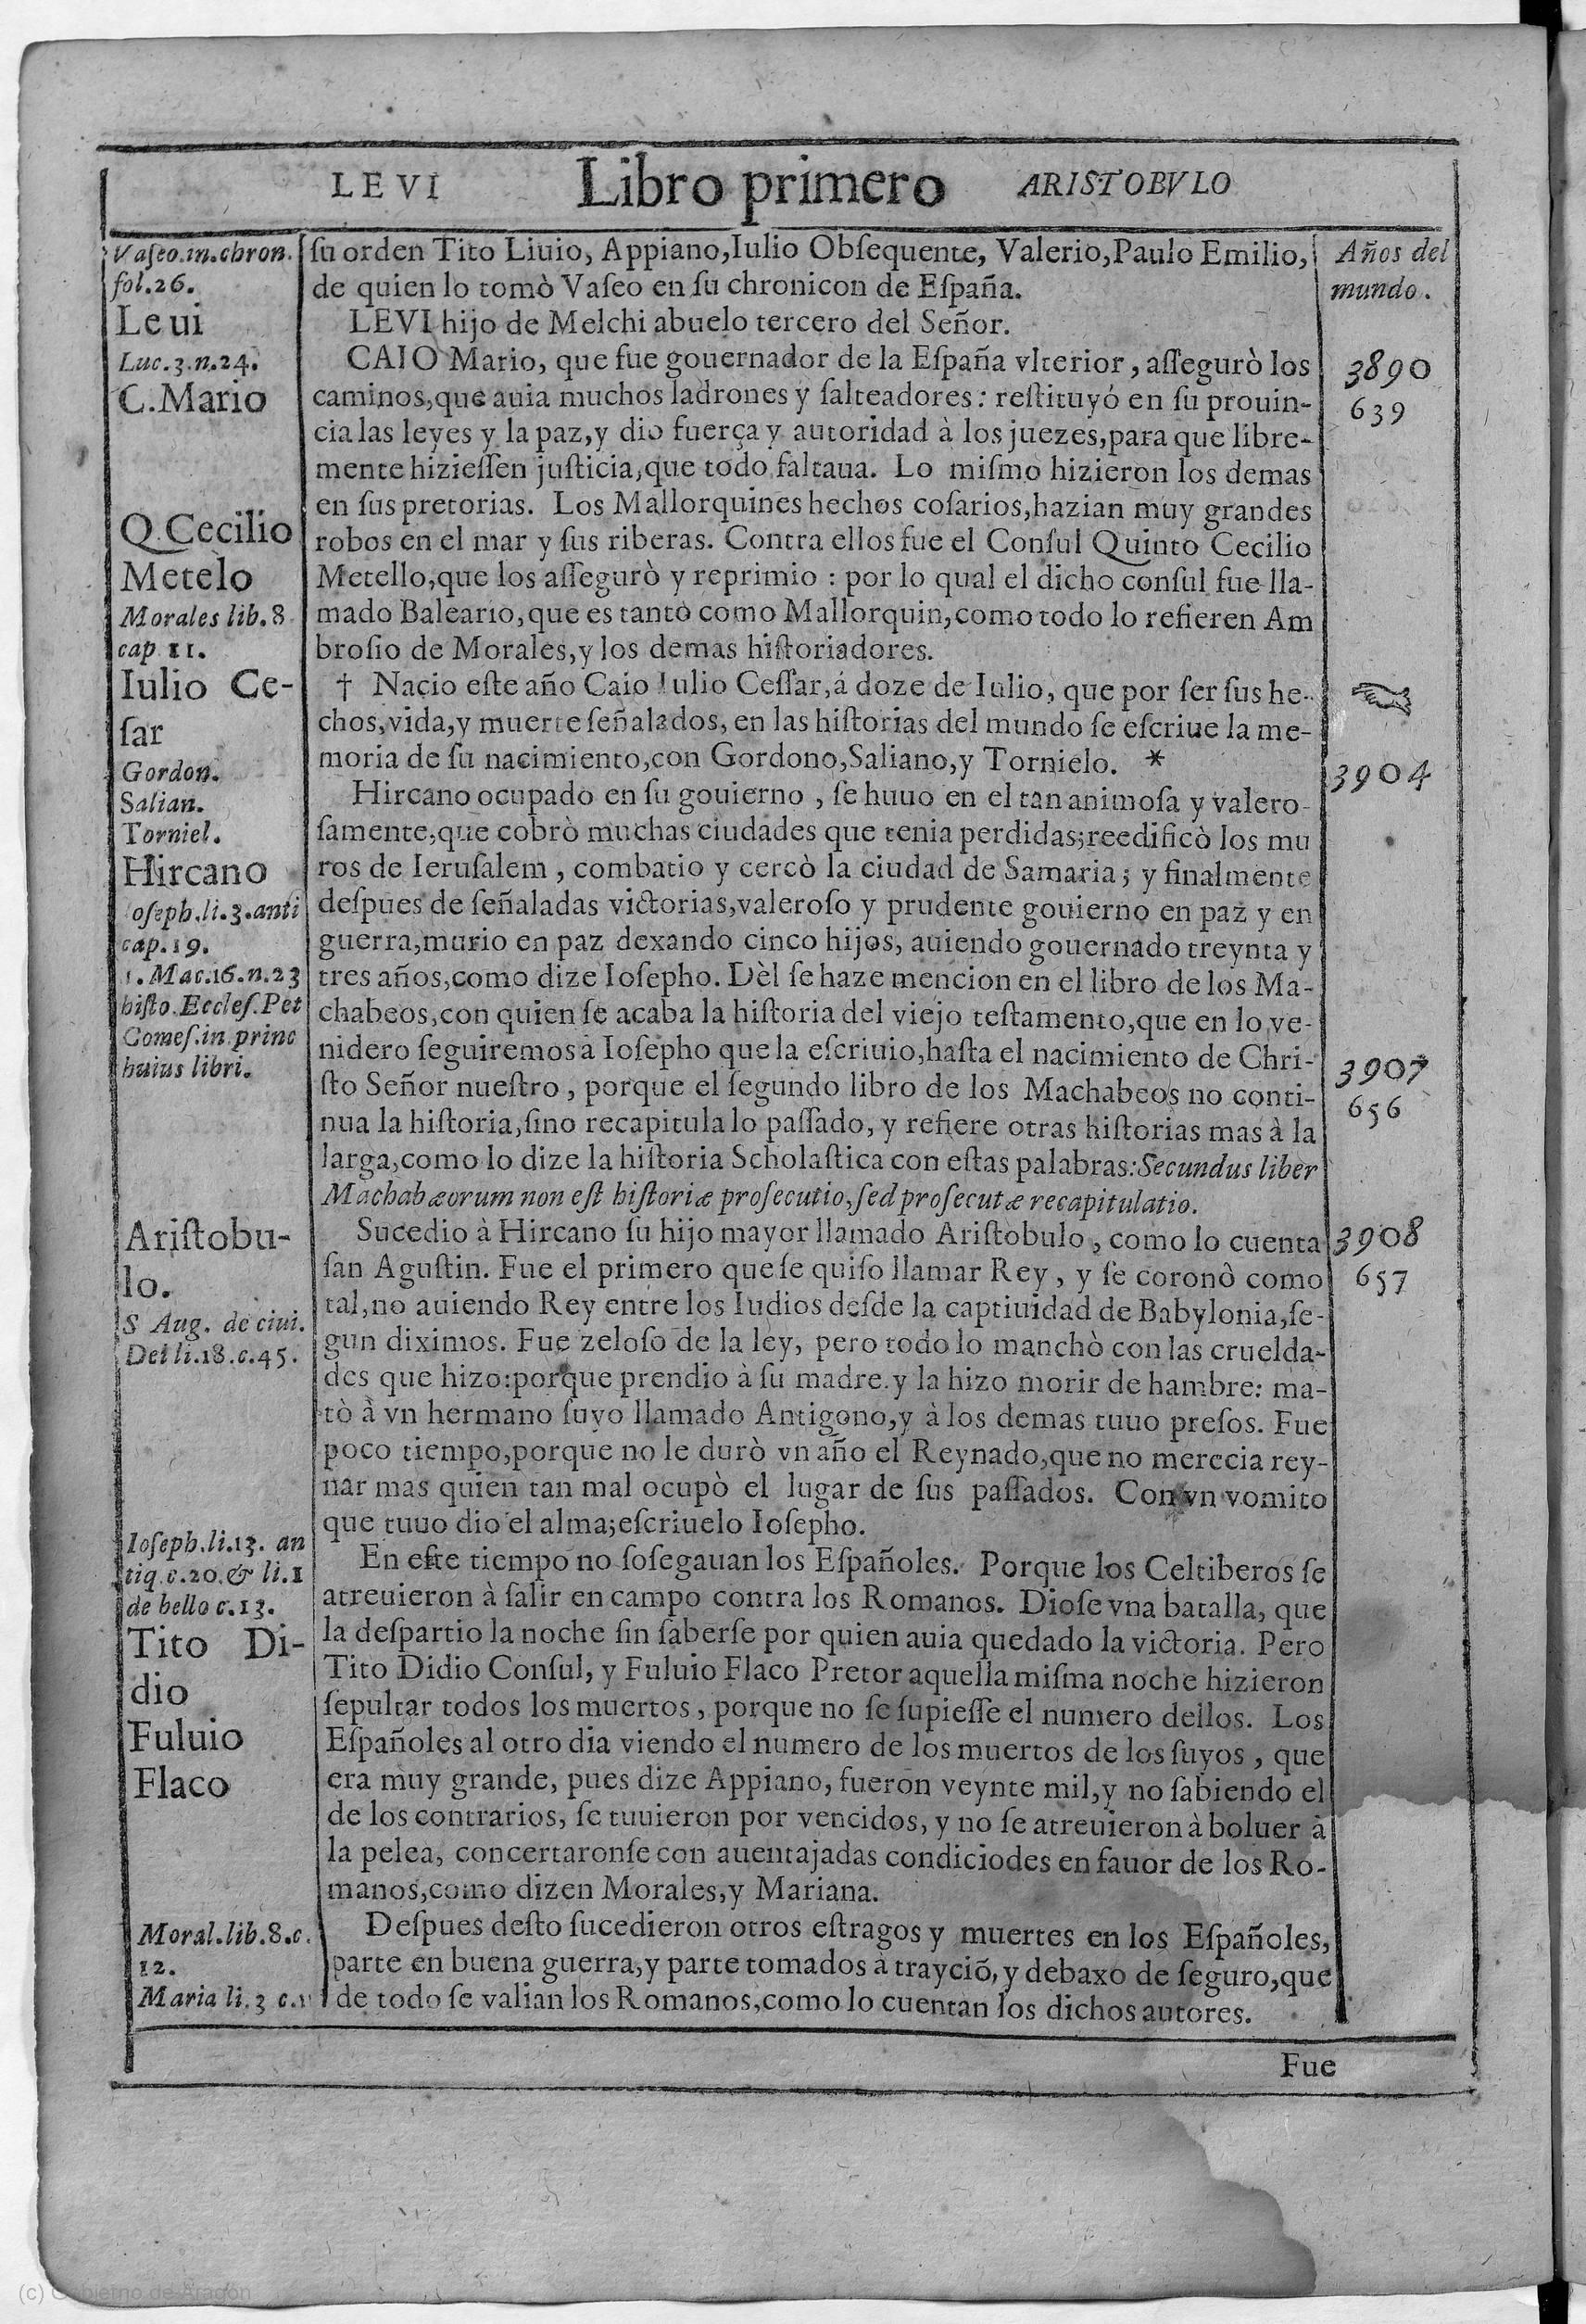 LEVI Libro primero ARISTOBVLO
Vaſeo.in.chron.
fol.26.
Leui
Luc.3.n.24.
C.Mario
Q.Cecilio
Metelo
Morales lib.8
cap 11.
Iulio Ce-
ſar
Gordon.
Salian.
Torniel.
Hircano
oſeph.li.3.anti
cap.19.
1.Mac.16.n.23
hiſto.Eccleſ.Pet
Gomeſ.in princ
huius libri.
Ariſtobu-
lo.
S Aug. de ciui.
Dei li.18.c.45.
Ioſeph.li.13. an
tiq.c.20.& li.1
de bello c.13.
Tito Di-
dio
Fuluio
Flaco
Moral.lib.8.c.
12.
Maria li.3 c.1
ſu orden Tito Liuio, Appiano,Iulio Obſequente, Valerio,Paulo Emilio,
de quien lo tomò Vaſeo en ſu chronicon de Eſpaña.
LEVI hijo de Melchi abuelo tercero del Señor.
CAIO Mario, que fue gouernador de la Eſpaña vlterior, aſſegurò los
caminos,que auia muchos ladrones y ſalteadores: reſtituyó en ſu prouin-
cia las leyes y la paz,y dio fuerça y autoridad à los juezes,para que libre-
mente hizieſſen juſticia,que todo faltaua. Lo miſmo hizieron los demas
en ſus pretorias. Los Mallorquines hechos coſarios,hazian muy grandes
robos en el mar y ſus riberas. Contra ellos fue el Conſul Quinto Cecilio
Metello,que los aſſegurò y reprimio : por lo qual el dicho conſul fue lla-
mado Baleario,que es tanto como Mallorquin,como todo lo refieren Am
broſio de Morales,y los demas hiſtoriadores.
† Nacio eſte año Caio Iulio Ceſſar,á doze de Iulio, que por ſer ſus he-
chos,vida,y muerte ſeñalados, en las hiſtorias del mundo ſe eſcriue la me-
moria de ſu nacimiento,con Gordono,Saliano,y Tornielo. *
Hircano ocupado en ſu gouierno , ſe huuo en el tan animoſa y valero-
ſamente,que cobrò muchas ciudades que tenia perdidas;reedificò los mu
ros de Ieruſalem , combatio y cercò la ciudad de Samaria; y finalmente
deſpues de ſeñaladas victorias,valeroſo y prudente gouierno en paz y en
guerra,murio en paz dexando cinco hijos, auiendo gouernado treynta y
tres años,como dize Ioſepho. Dèl ſe haze mencion en el libro de los Ma-
chabeos,con quien ſe acaba la hiſtoria del viejo teſtamento,que en lo ve-
nidero ſeguiremos à Ioſepho que la eſcriuio,haſta el nacimiento de Chri-
ſto Señor nueſtro , porque el ſegundo libro de los Machabeos no conti-
nua la hiſtoria,ſino recapitula lo paſſado, y refiere otras hiſtorias mas à la
larga,como lo dize la hiſtoria Scholaſtica con eſtas palabras:Secundus liber
Machabæorum non eſt hiſtoriæ proſecutio,ſed proſecutæ recapitulatio.
Sucedio à Hircano ſu hijo mayor llamado Ariſtobulo , como lo cuenta
ſan Aguſtin. Fue el primero que ſe quiſo llamar Rey , y ſe coronò como
tal,no auiendo Rey entre los Iudios deſde la captiuidad de Babylonia,ſe-
gun diximos. Fue zeloſo de la ley, pero todo lo manchò con las cruelda-
des que hizo:porque prendio à ſu madre.y la hizo morir de hambre: ma-
tò à vn hermano ſuyo llamado Antigono,y à los demas tuuo preſos. Fue
poco tiempo,porque no le durò vn año el Reynado,que no merecia rey-
nar mas quien tan mal ocupò el lugar de ſus paſſados. Con vn vomito
que tuuo dio el alma;eſcriuelo Ioſepho.
En eſte tiempo no ſoſegauan los Eſpañoles. Porque los Celtiberos ſe
atreuieron à ſalir en campo contra los Romanos. Dioſe vna batalla, que
la deſpartio la noche ſin ſaberſe por quien auia quedado la victoria. Pero
Tito Didio Conſul, y Fuluio Flaco Pretor aquella miſma noche hizieron
ſepultar todos los muertos, porque no ſe ſupieſſe el numero dellos. Los
Eſpañoles al otro dia viendo el numero de los muertos de los ſuyos , que
era muy grande, pues dize Appiano, fueron veynte mil,y no ſabiendo el
de los contrarios, ſe tuuieron por vencidos, y no ſe atreuieron à boluer à
la pelea, concertaronſe con auentajadas condiciodes en fauor de los Ro-
manos,como dizen Morales,y Mariana.
Deſpues deſto ſucedieron otros eſtragos y muertes en los Eſpañoles,
parte en buena guerra,y parte tomados à trayciõ,y debaxo de ſeguro,que
de todo ſe valian los Romanos,como lo cuentan los dichos autores.
Años del
mundo.
3890
639
3904
3907
656
3908
657
Fue
(c) Gobierno de Aragón